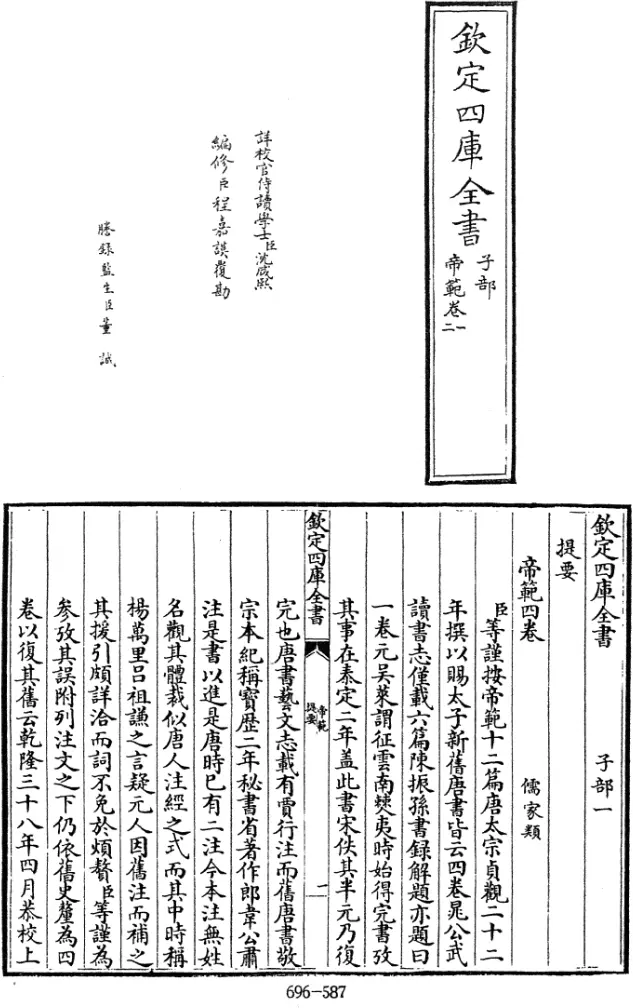 欽定四庫全書
子部
帝範卷一
二
詳校官侍讀學士臣沈咸熙
編修臣程嘉謨覆勘
謄錄監生臣董誠
欽定四庫全書
子部一
提要
儒家類
帝範四卷
臣等謹按帝範十二篇唐太宗貞觀二十二
年撰以賜太子新舊唐書皆云四卷晁公武
讀書志僅載六篇陳振孫書錄解題亦題曰
一卷元吳萊謂征雲南僰夷時始得完書攷
其事在泰定二年盖此書宋佚其半元乃復
欽定四庫全書
帝範
提要
一
完也唐書藝文志載有賈行注而舊唐書敬
宗本紀稱寶歷二年秘書省著作郎韋公肅
注是書以進是唐時已有二注今本注無姓
名觀其體裁似唐人注經之式而其中時稱
楊萬里吕祖謙之言疑元人因舊注而補之
其援引頗詳洽而詞不免於煩贅臣等謹為
參攷其誤附列注文之下仍依舊史釐為四
卷以復其舊云乾隆三十八年四月恭校上
696-587